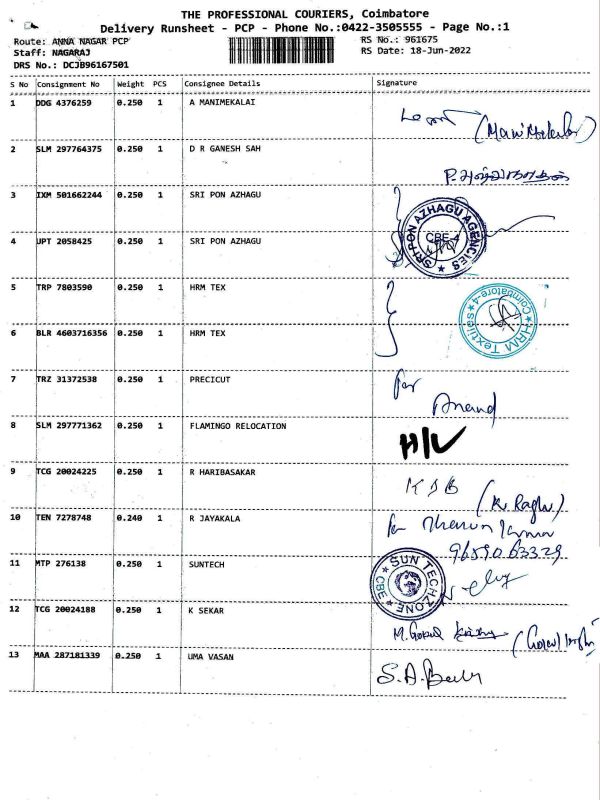 THE PROFESSIONAL COURIERS, Coimbatore
Delivery Runsheet - PCP - Phone No.:0422-3505555 - Page No.:1
Route: ANNA NAGAR PCP RS No.: 961675
Staff: NAGARAJ RS Date: 18-Jun-2022
DRS No.: DCJB96167501
S No Consignment No Weight PCS Consignee Details Signature
1 DDG 4376259 0.250 1 A MANIMEKALAI
2 SLM 297764375 0.250 1 D R GANESH SAH
3 IXM 501662244 0.250 1 SRI PON AZHAGU
SRI PON AZHAGU AGENCIES
CBE-4
4 UPT 2058425 0.250 1 SRI PON AZHAGU
5 TRP 7803590 0.250 1 HRM TEX
HRM Textiles Coimbatore-4
6 BLR 4603716356 0.250 1 HRM TEX
7 TRZ 31372538 0.250 1 PRECICUT
for
Anand
8 SLM 297771362 0.250 1 FLAMINGO RELOCATION
H/L
9 TCG 20024225 0.250 1 R HARIBASAKAR
(K. Raghu)
10 TEN 7278748 0.240 1 R JAYAKALA
for
9659063329
11 MTP 276138 0.250 1 SUNTECH
SUN TECHZONE CBE
12 TCG 20024188 0.250 1 K SEKAR
M. Gokul
13 MAA 287181339 0.250 1 UMA VASAN
S.A.